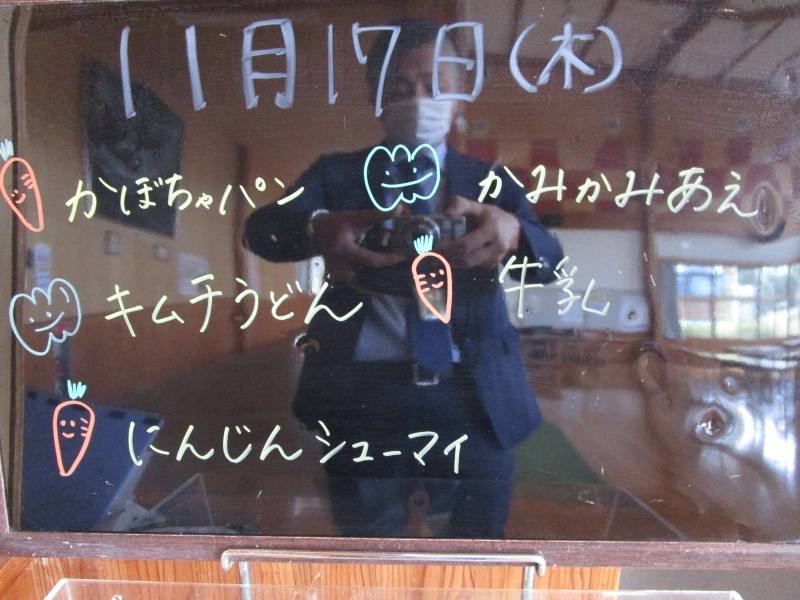 11月17日(木)
かぼちゃパン
キムチうどん
にんじんシューマイ
かみかみあえ
牛乳